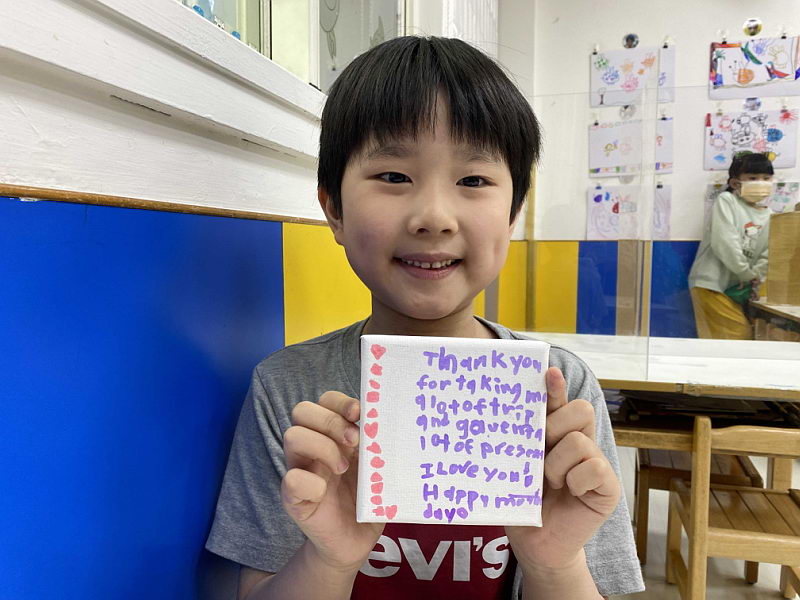 Thank you
for taking me
a lot of trip
and gave m a
lot of presen
I Love you!
Happy moth
dayo
evi's